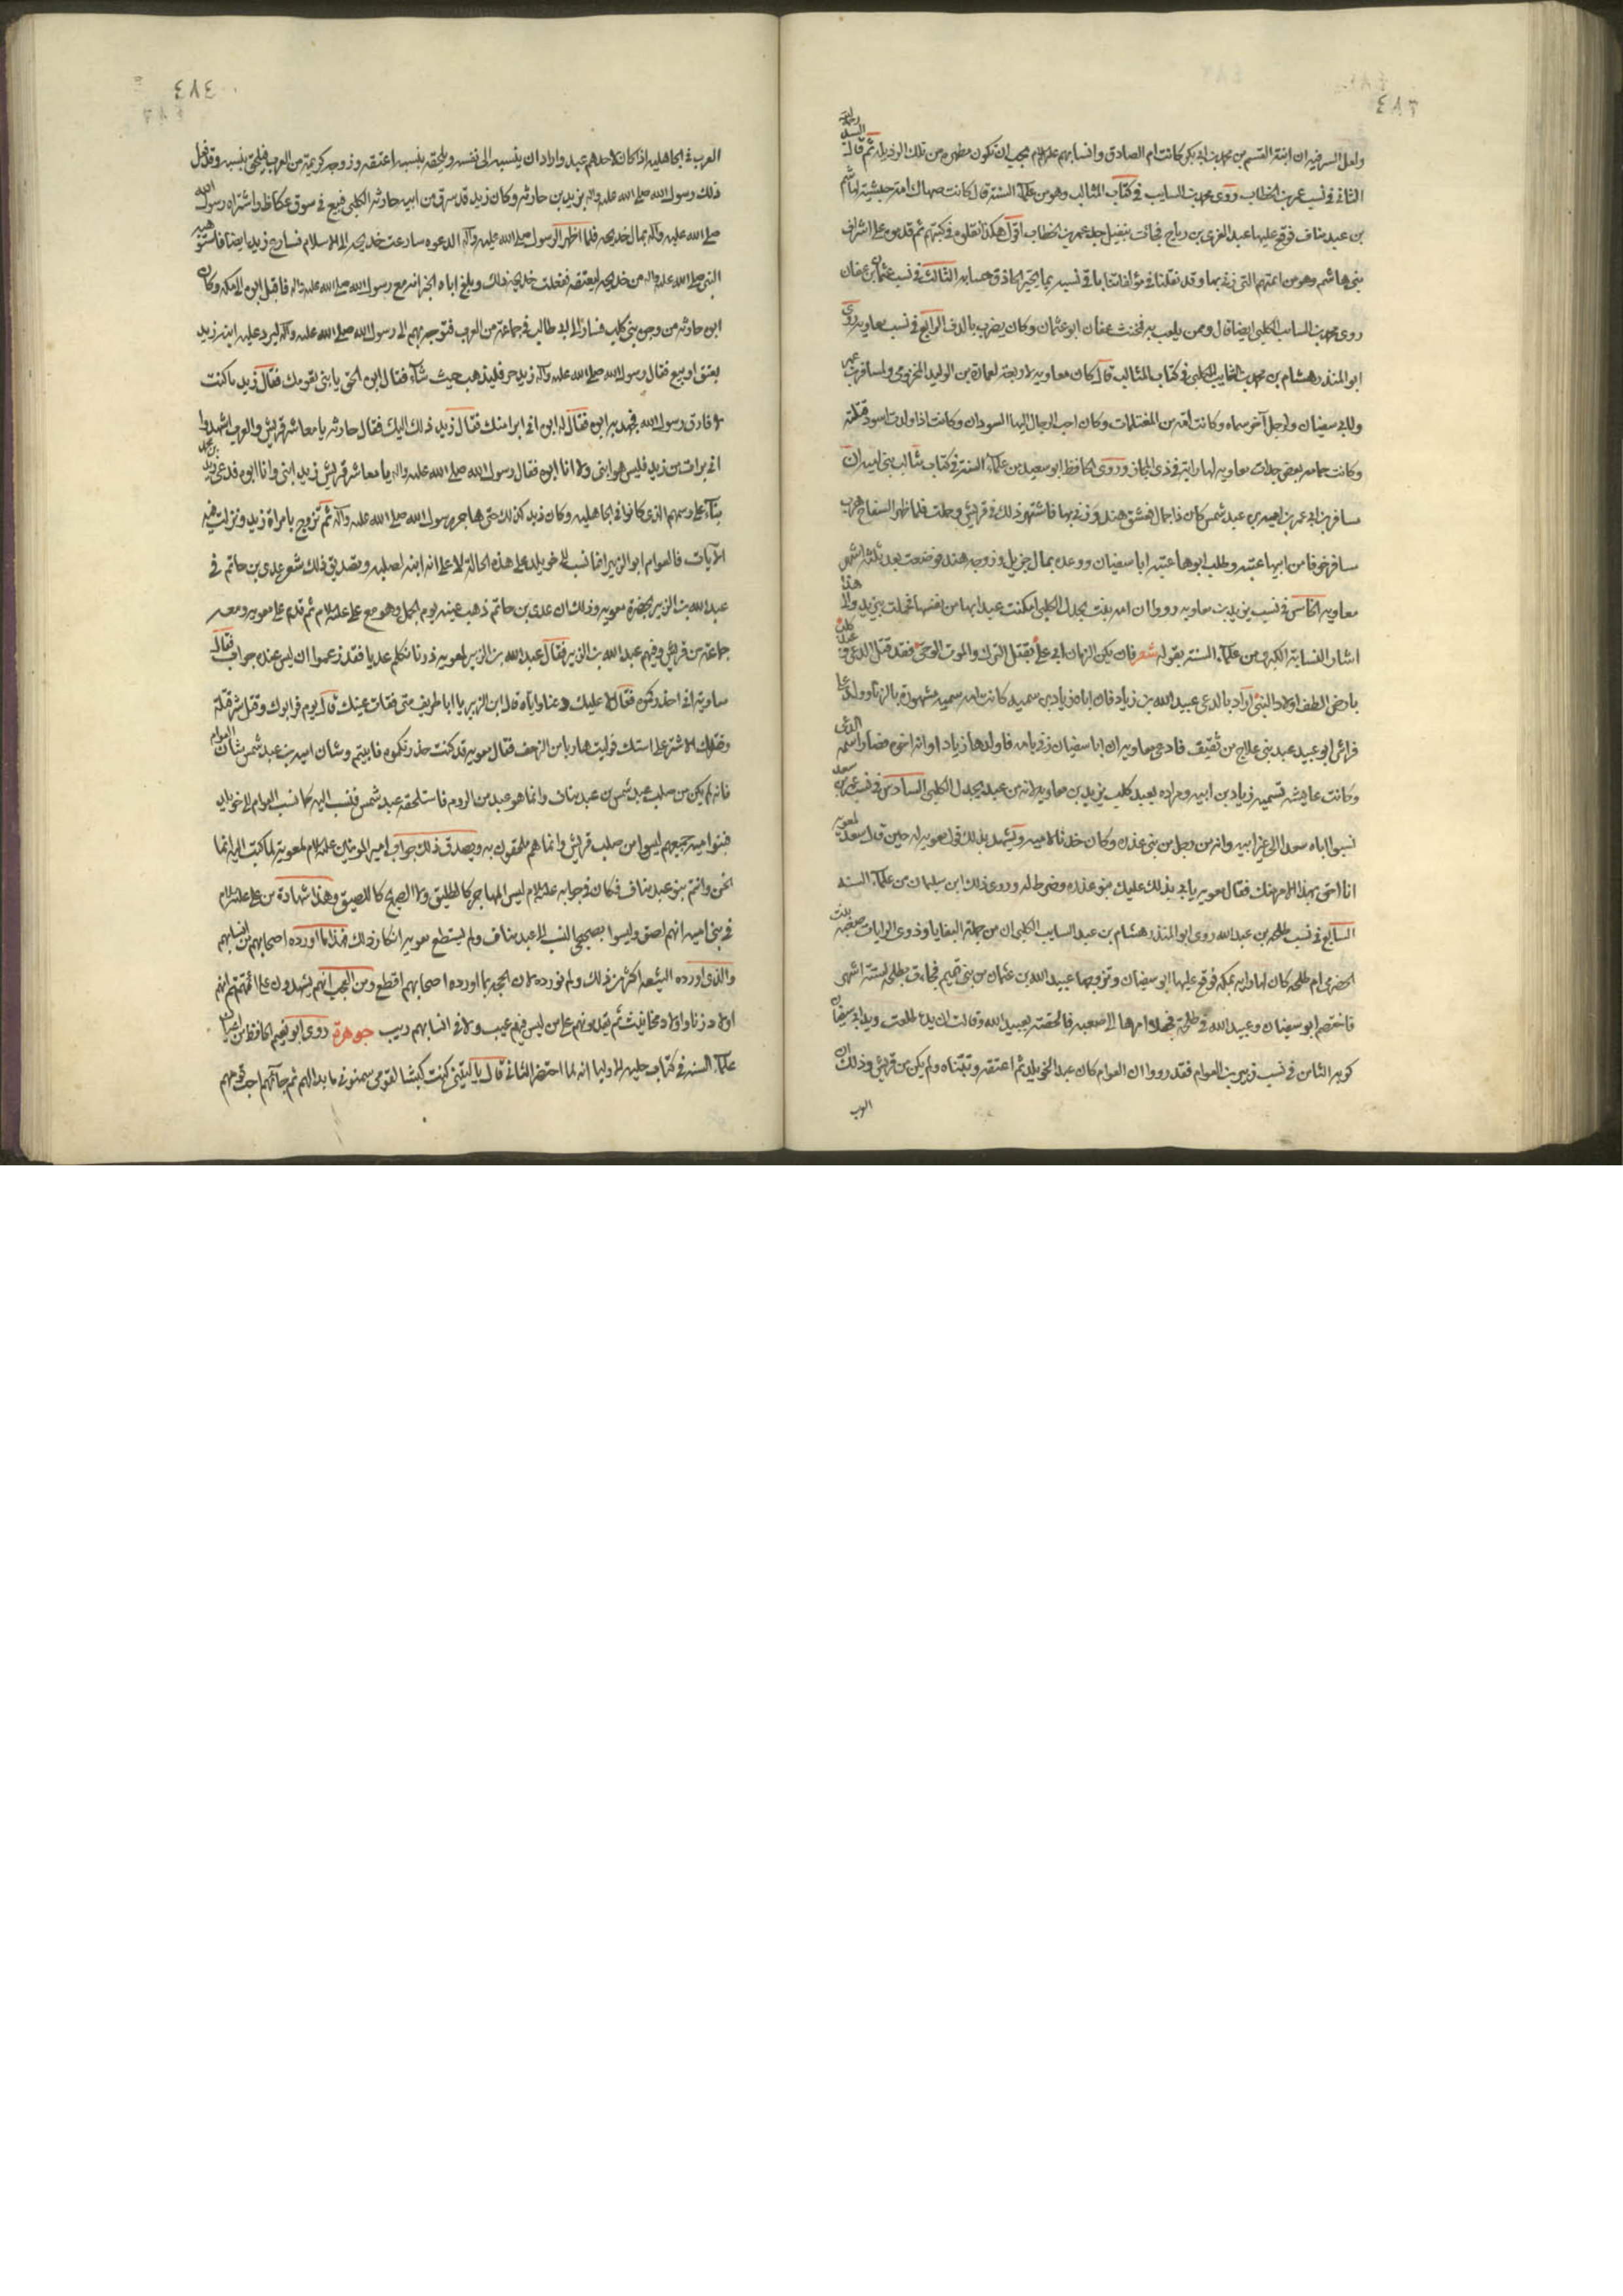 ٤٨٣
ولعل السر فيه ان ابنة القسم بن محمد بن ابي بكر كانت ام الصادق وانسابهم عليهم السلام يجب ان تكون مطهرة من تلك الرذيلة ثم قال السيد رحمه الله
الثاني في نسب عمر بن الخطاب روى محمد بن السايب في كتاب المثالب وهو من علماء السنة قال كانت صهاك امة حبشية لهاشم
بن عبد مناف فوقع عليها عبد العزى بن رياح فجاءت بنفيل جد عمر بن الخطاب اقول هكذا نقلوه في كتبهم ثم قدموه على اشراف
بني هاشم وهو من امتهم التي زنى بها وقد نقلنا في مؤلفاتنا باقي نسبه بما يتحير الحاذق حسابه الثالث في نسب عثمان بن عفان
روى محمد بن السايب الكلبي ايضا قال وممن يلعب به فتخنث عفان ابو عثمان وكان يضرب بالدف الرابع في نسب معاويه روى
ابو المنذر هشام بن محمد بن السايب الكلبي في كتاب المثالب قال كان معاويه لاربعة لعمارة بن الوليد المخزومي ولمسافر بن عمر
ولابي سفيان ولرجل آخر سماه وكانت امه من المغتلمات وكان احب الرجال اليها السودان وكانت اذا ولدت اسود قتلته
وكانت حمامه بعض جدات معاويه لها راية في ذي المجاز وروى الحافظ ابو سعيد من علماء السنة في كتاب مثالب بني اميه ان
مسافر بن ابي عمر بن اميه بن عبد شمس كان ذا جمال فعشق هند وزنى بها فاشتهر ذلك في قريش وحملت فلما ظهر السفاح هرب
مسافر خوفا من ابيها عتبه وطلب ابوها عتبه ابا سفيان ووعده بمال جزيل وزوجه هند فوضعت بعد ثلثة اشهر
معاويه الخامس في نسب يزيد بن معاويه رووا ان امه بنت بجدل الكلبي امكنت عبد ابيها من نفسها فحملت بيزيد والى هذا
اشار النسابة الكلبي من علماء السنة بقوله شعر فان يكن الزمان اتى علينا بقتل الترك والموت الوحي فقد قتل الدعي وعبد كلب
بارض الطف اولاد النبي اراد بالدعي عبيد الله بن زياد فان اباه زياد بن سميه كانت امه سميه مشهورة بالزنا وولد على
فراش ابو عبيد عبد بني علاج من ثقيف فادعى معاويه ان ابا سفيان زنى بامه فاولدها زيادا وانه اخوه فصار اسمه الدعي
وكانت عايشه تسميه زياد بن ابيه ومراده بعبد كلب يزيد بن معاويه لانه من عبد بجدل الكلبي السادس في نسب عمر بن سعد
نسبوا اباه سعدا الى غير ابيه وانه من رجل من بني عذره وكان خدنا لامه ويشهد بذلك قول معويه له حين قال سعد لمعويه
انا احق بهذا الامر منك فقال معويه يابى بذلك عليك بنو عذره وضرط له وروى ذلك ابن سليمان من علماء السنه
السابع في نسب طلحه بن عبد الله روى ابو المنذر هشام بن عبد السايب الكلبي ان من جملة البغايا وذوي الرايات صعبه بنت
الحضرمي ام طلحه كان لها راية بمكه فوقع عليها ابو سفيان وتزوجها عبيد الله بن عثمان من بني تميم فجاءت بطلحه لستة اشهر
فاختصم ابو سفيان وعبيد الله في طلحة فجعلا امرها الى صعبه فالحقته بعبيد الله وقالت ان يد طلحه ويد ابي سفيان
كويه الثامن في نسب زبير بن العوام فقد رووا ان العوام كان عبدا لخويلد ثم اعتقه وتبناه ولم يكن من قريش وذلك ان
العرب
٤٨٤
العرب في الجاهليه اذا كان لاحدهم عبد واراد ان ينسبه الى نفسه ويلحقه بنسبه اعتقه وزوجه كريمة من العرب فيلحق بنسبه وقد فعل
ذلك رسول الله صلى الله عليه واله بزيد بن حارثه وكان زيد قد سرق من ابيه حارثه الكلبي فبيع في سوق عكاظ واشتراه رسول الله
صلى الله عليه وآله بمال خديجه فلما اظهر الرسول صلى الله عليه وآله الدعوه سارعت خديجه الى الاسلام فسارع زيد ايضا فاستوهبه
النبي صلى الله عليه واله من خديجه ليعتقه ففعلت خديجه ذلك وبلغ اباه الخبر انه مع رسول الله صلى الله عليه واله فاقبل ابوه الى مكه وكان
ابوه حارثه من وجوه بني كلب فسار الى ابي طالب في جماعة من العرب فتوجه بهم الى رسول الله صلى الله عليه وآله ليرد عليه ابنه زيد
بعتق او بيع فقال رسول الله صلى الله عليه وآله زيد حر فليذهب حيث شاء فقال ابوه الحق يا بني بقومك فقال زيد ما كنت
لافارق رسول الله فجهد به ابوه فقال له ابوه اني ابرا منك فقال زيد ذلك اليك فقال حارثه يا معاشر قريش والعرب اشهدوا
اني برات من زيد فليس هو ابني ولا انا ابوه فقال رسول الله صلى الله عليه واله يا معاشر قريش زيد ابني وانا ابوه فدعي زيد بن محمد
بناء على رسمهم الذي كانوا في الجاهليه وكان زيد كذلك حتى هاجر رسول الله صلى الله عليه وآله ثم تزوج بامراة زيد ونزلت فيه
الآيات فالعوام ابو الزبير انما نسب الى خويلد على هذه الحالة لا على انه ابنه لصلبه وتصديق ذلك شعر عدي بن حاتم في
عبد الله بن الزبير بحضرة معويه وذلك ان عدي بن حاتم ذهب عينه يوم الجمل وهو مع علي عليه السلام ثم قدم على معويه ومعه
جماعة من قريش وفيهم عبد الله بن الزبير فقال عبد الله بن الزبير لمعويه ذرنا نكلم عديا فقد زعموا ان ليس عنده جواب فقال
معاويه اني احذركموه فقال لا عليك دعنا واياه قال ابن الزبير يا ابا طريف متى فقات عينك قال يوم فر ابوك وقتل شر قتلة
وضربك الاشتر على استك فوليت هاربا من الزحف فقال معويه قد كنت حذرتكموه فابيتم وشان اميه بن عبد شمس شان العوام
فانه لم يكن من صلب عبد شمس بن عبد مناف وانما هو عبد من الروم فاستلحقه عبد شمس فنسب اليه كما نسب العوام الى خويلد
فبنوا اميه جميعهم ليسوا من صلب قريش وانما هم ملحقون به ويصدق ذلك جواب امير المومنين عليه السلام لمعوية لما كتب اليه انما
نحن وانتم بنو عبد مناف فكان جوابه عليه السلام ليس المهاجر كالطليق ولا الصريح كاللصيق وهذا شهادة من علي عليه السلام
في بني اميه انهم لصق وليسوا بصحيحي النسب الى عبد مناف ولم يستطع معويه انكار ذلك فهذا ما اورده اصحابهم من انسابهم
والذي اورده الشيعه اكثر من ذلك ولم نورده لان الحجه بما اورده اصحابهم اقطع ومن العجب انهم يشهدون على ائمتهم انهم
اولاد زنا واولاد مخانيث ثم يقدمونهم على من ليس فيهم عيب ولا في انسابهم ريب جوهرة روى ابو نعيم الحافظ من
علماء السنه في كتاب حلية الاوليا انه لما احتضر الثاني قال يا ليتني كنت كبشا لقومي سمنوني ما بدا لهم ثم جاءهم احب قومهم